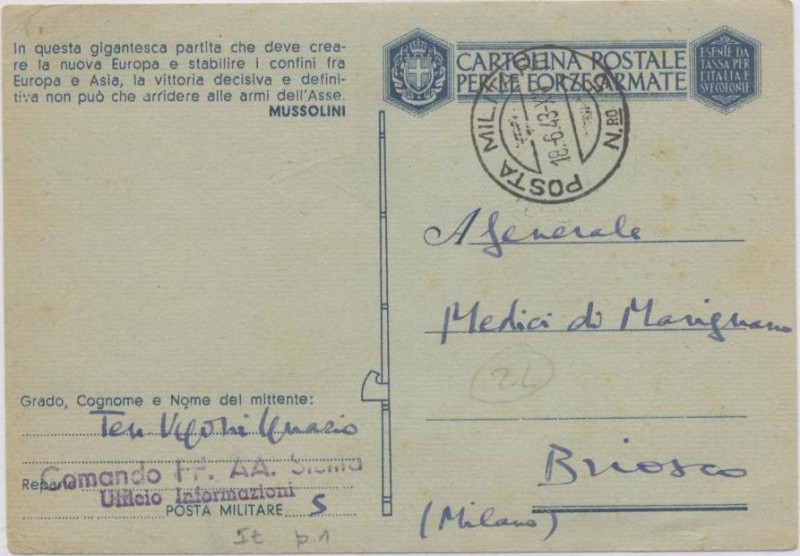 In questa gigantesca partita che deve crea-
re la nuova Europa e stabilire i confini fra
Europa e Asia, la vittoria decisiva e defini-
tiva non può che arridere alle armi dell'Asse.
MUSSOLINI
CARTOLINA POSTALE
PER LE FORZE ARMATE
ESENTE DA
TASSA PER
L'ITALIA E
SUE COLONIE
POSTA MILITARE N.RO
18.6.43
A Generale
Medici di Marignano
Briosco
(Milano)
24
Grado, Cognome e Nome del mittente:
Ten Vigoni Ignazio
Reparto
Comando FF. AA. Sicilia
Ufficio Informazioni
POSTA MILITARE 5
p.1